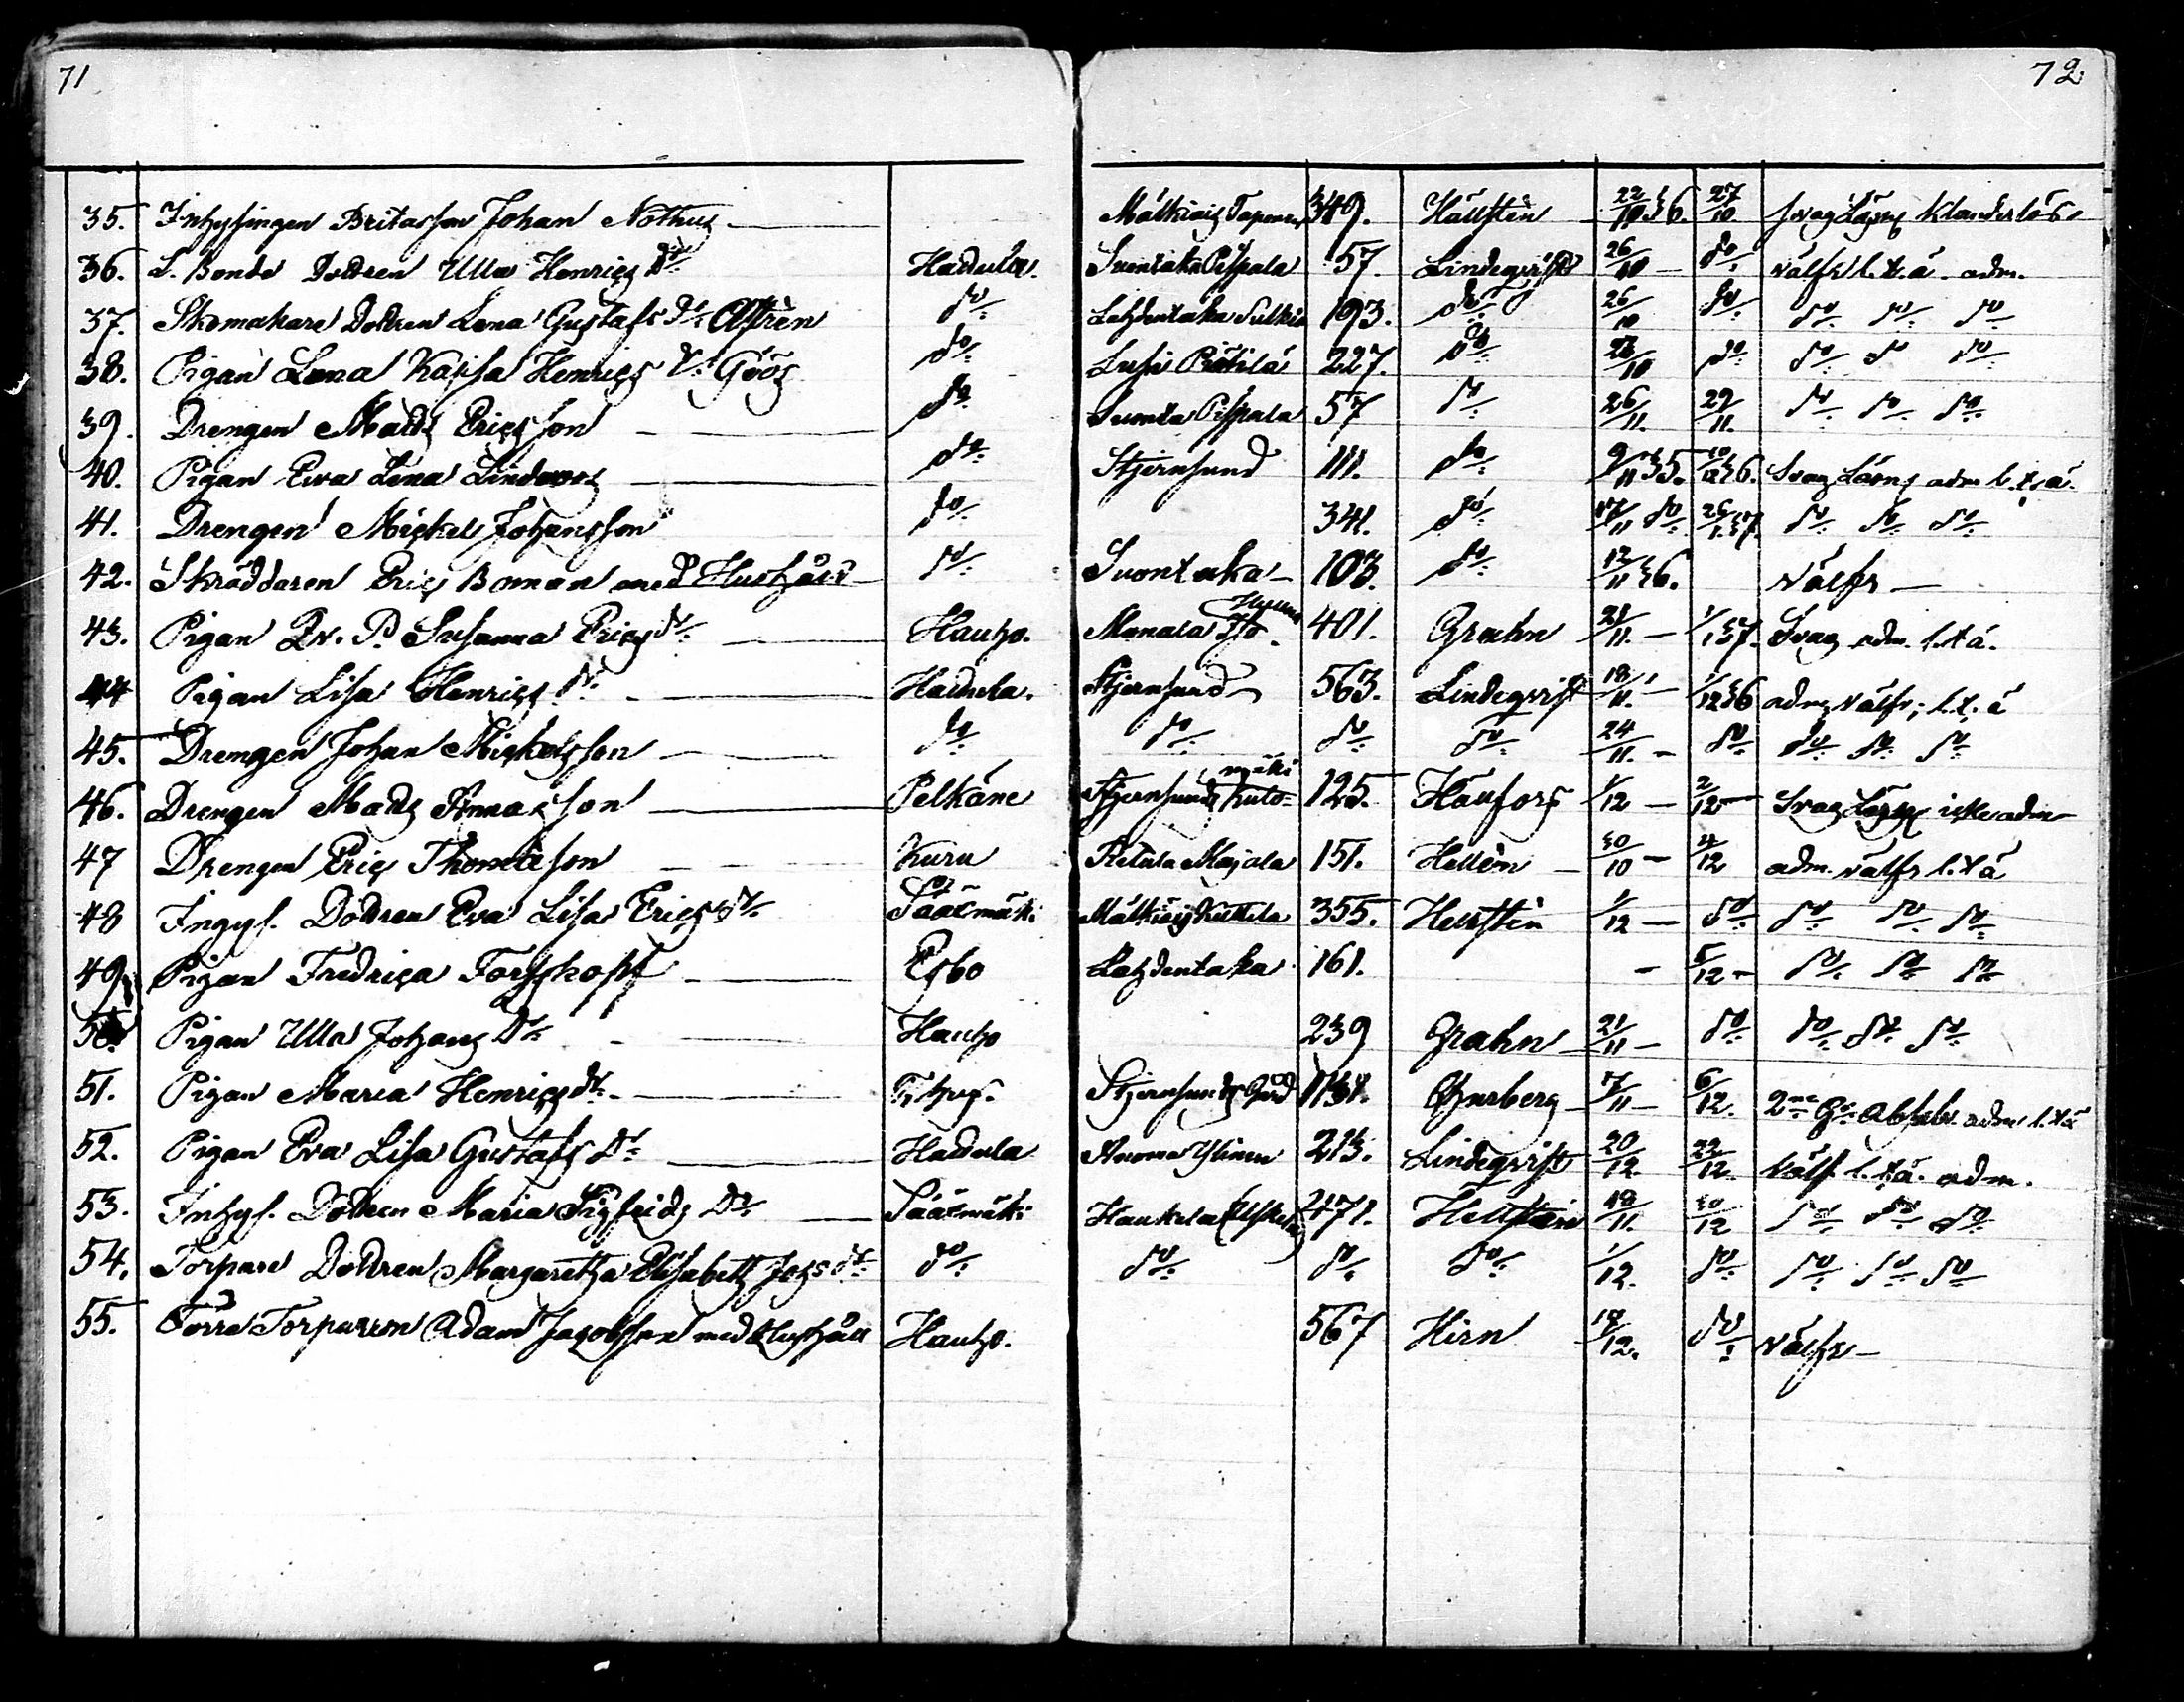 71
72
35. Inhysingen Britasson Johan Nothus — Mälkiäis 349. Hällstén 22/10 36. 27/10. svag Läsn klanderlös
36. L. Bonde Dottren Ulla Henrics Dr. Hattula. Suontaka Pispala 57. Lindeqvist 26/10 — do välfr l. t. ä. adm.
37. Skomakare Dottren Lena Gustafs dr Astrén do Lahdentaka 193. do 26/10 do do do do
38. Pigan Lena Kajsa Henrics dr Göös do Lusi 227. do 26/10 do do do do
39. Drengen Matts Ericsson — do Suontaka Pispala 57 do 26/11. 29/11. do do do
40. Pigan Eva Lena — do Stjernsund 111. do 9/11 35. 36. Svag Läsns adm l. t. ä.
41. Drengen Mickel Johansson do 341. do 17/11 do 26/1 37. do do do
42. Skräddaren Eric Boman med Hushåll do Suontaka — 103. do 12/11 36. Välfr —
43. Pigan Qv. P. Susanna Ericsdr. — Hauho. Monaala 401. Grahn 21/11. — 1/1 37. Svag adm. l. t. ä.
44 Pigan Lisa Henrics dr. — Hattula. Stjernsund 563. Lindeqvist 18/11. — 1/12 36 adm, välfr; l. t. ä
45. Drengen Johan Mickelsson — do do do do 24/11. — do do do do
46. Drengen Matts Annasson — Pelkäne Stjernsund Kulo= mäki 125. Häufors 1/12 — 2/12 — Svag Läsn icke adm
47 Drengen Eric Thomasson — Kuru Retula Majala 151. Hellén — 30/10 — 4/12 adm. välfr l. t. ä
48 Inhys. Dottren Eva Lisa Ericsdr. Sääxmäki Mälkiäis Kuttila 355. Hellstén 1/12 — do do do do
49. Pigan Fredrica Forsskopf — Esbo Lahdentaka 161. — 5/12 — do do do
50. Pigan Ulla Johans Dr. — Hauho 239 Grahn 21/11 — do do do do
51. Pigan Maria Henricsdr. — Stjernsunds Gård 7/11 — 6/12. 2ne Gr. Absolv. adm l. t. ä
52. Pigan Eva Lisa Gustafs dr — Hattula Ylinen 213. Lindeqvist 20/12. 22/12. Välfr l. t. ä. adm.
53. Inhys. Dottren Maria Sigfrids Dr. — Sääxmäki Haukila 471. Hellstén 18/11. 30/12 do do do
54. Torpare Dottren Margaretha Elisabeth Johsdr do do do do 1/12. do do do do
55. Förra Torparen Adam Jacobsson med Hushåll Hauho. 567 Hirn 18/12. do Välfr —